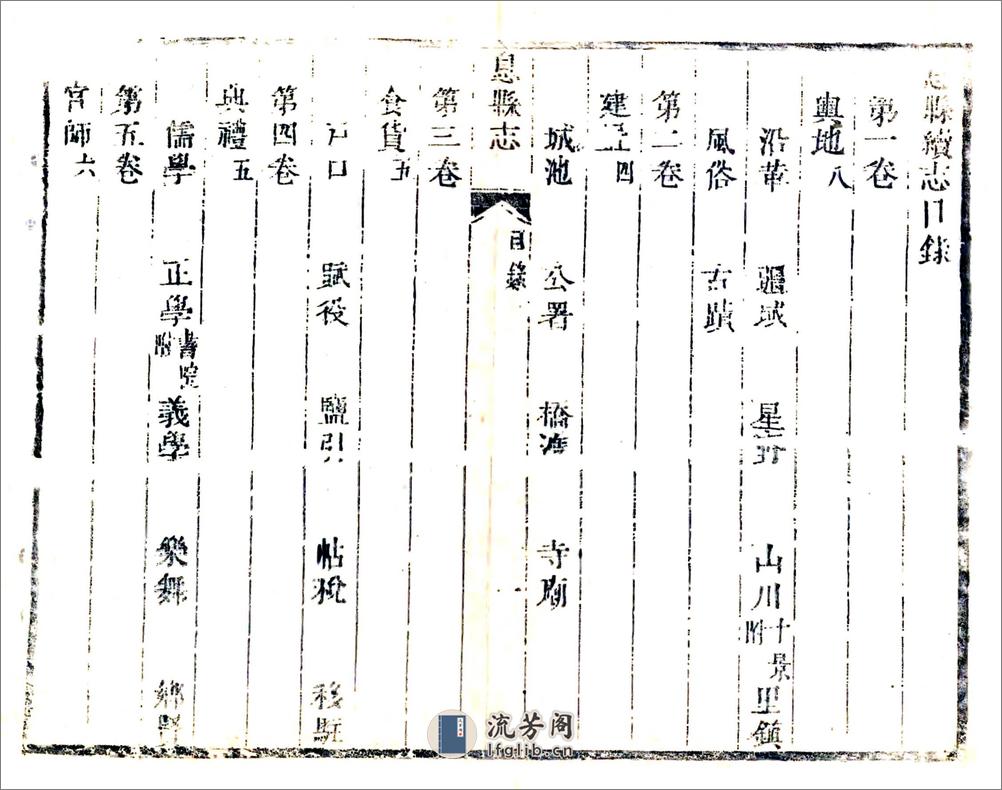 息縣續志目錄
第一卷
輿地八
沿革 疆域 星野 山川十景附 里鎮
風俗 古蹟
第二卷
建置四
城池 公署 橋海 寺廟
息縣志 目錄
第三卷
食貨五
戶口 賦役 鹽引 帖稅 移駐
第四卷
典禮五
儒學 正學書院附 義學 樂舞 鄉賢
第五卷
官師六
流芳阁
lfglib.cn